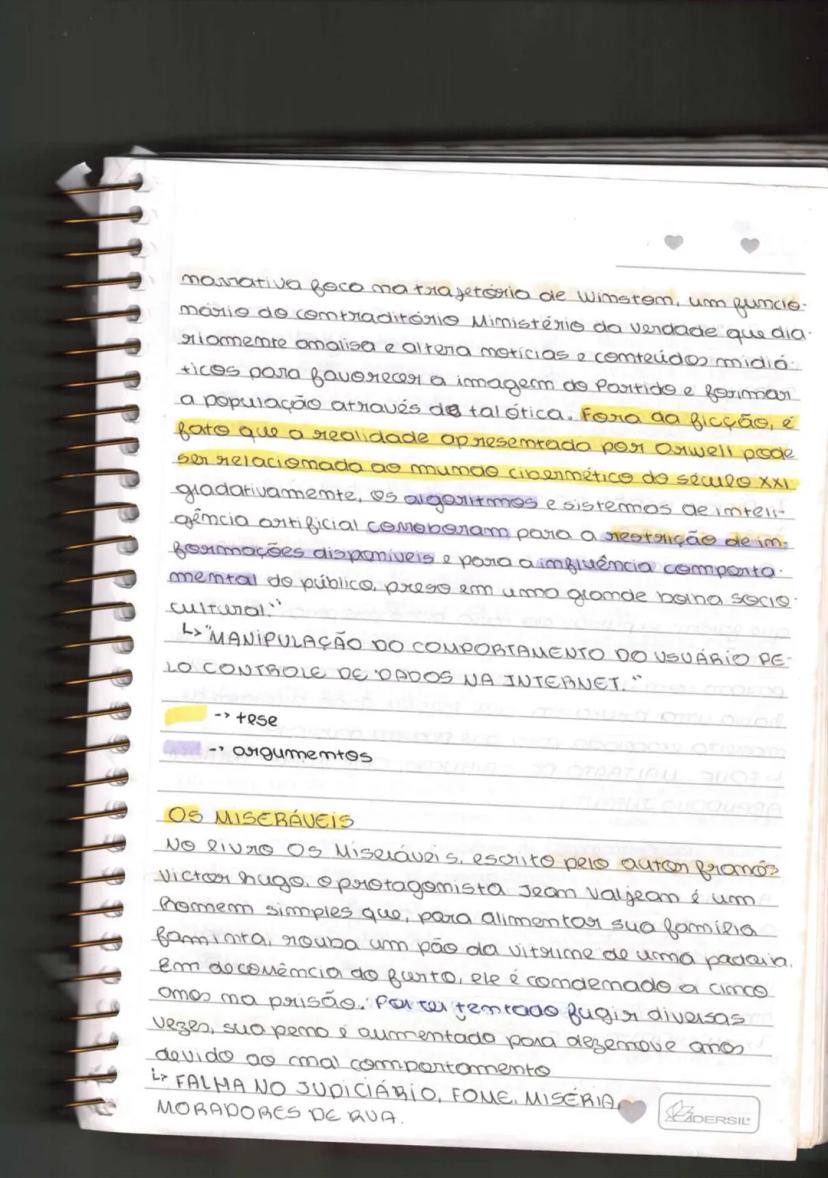 narrativa foca na trajetória de Winston, um funcio-
nário do contraditório Ministério da verdade que dia-
riamente analisa e altera notícias e conteúdos midiá-
ticos para favorecer a imagem do Partido e formar
a população através de tal ótica. Fora da ficção, é
fato que a realidade apresentada por Orwell pode
ser relacionada ao mundo cibernético do século XXI
gradativamente, os algoritmos e sistemas de inteli-
gência artificial corroboram para a restrição de in-
formações disponíveis e para a influência comporta-
mental do público, preso em uma grande bolha socio-
cultural."
↳ "MANIPULAÇÃO DO COMPORTAMENTO DO USUÁRIO PE-
LO CONTROLE DE DADOS NA INTERNET."
-> tese
-> argumentos
OS MISERÁVEIS
No livro Os Miseráveis, escrito pelo autor francês
Victor hugo, o protagonista Jean Valjean é um
homem simples que, para alimentar sua família
faminta, rouba um pão da vitrine de uma padaria.
Em decorrência do furto, ele é condenado a cinco
anos na prisão. Por ter tentado fugir diversas
vezes, sua pena é aumentada para dezenove anos
devido ao mal comportamento
↳ FALHA NO JUDICIÁRIO, FOME, MISÉRIA,
MORADORES DE RUA.